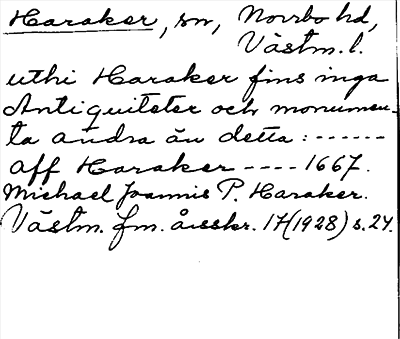 Haraker, sn, Norrbo hd,
Västm. l.
uthi Haraker fins inga
Antiquiteter och monumen-
ta andra än detta : ------
aff Haraker ---- 1667.
Michael Joannis P. Haraker.
Västm. fm. årsskr. 17(1928) s. 24.